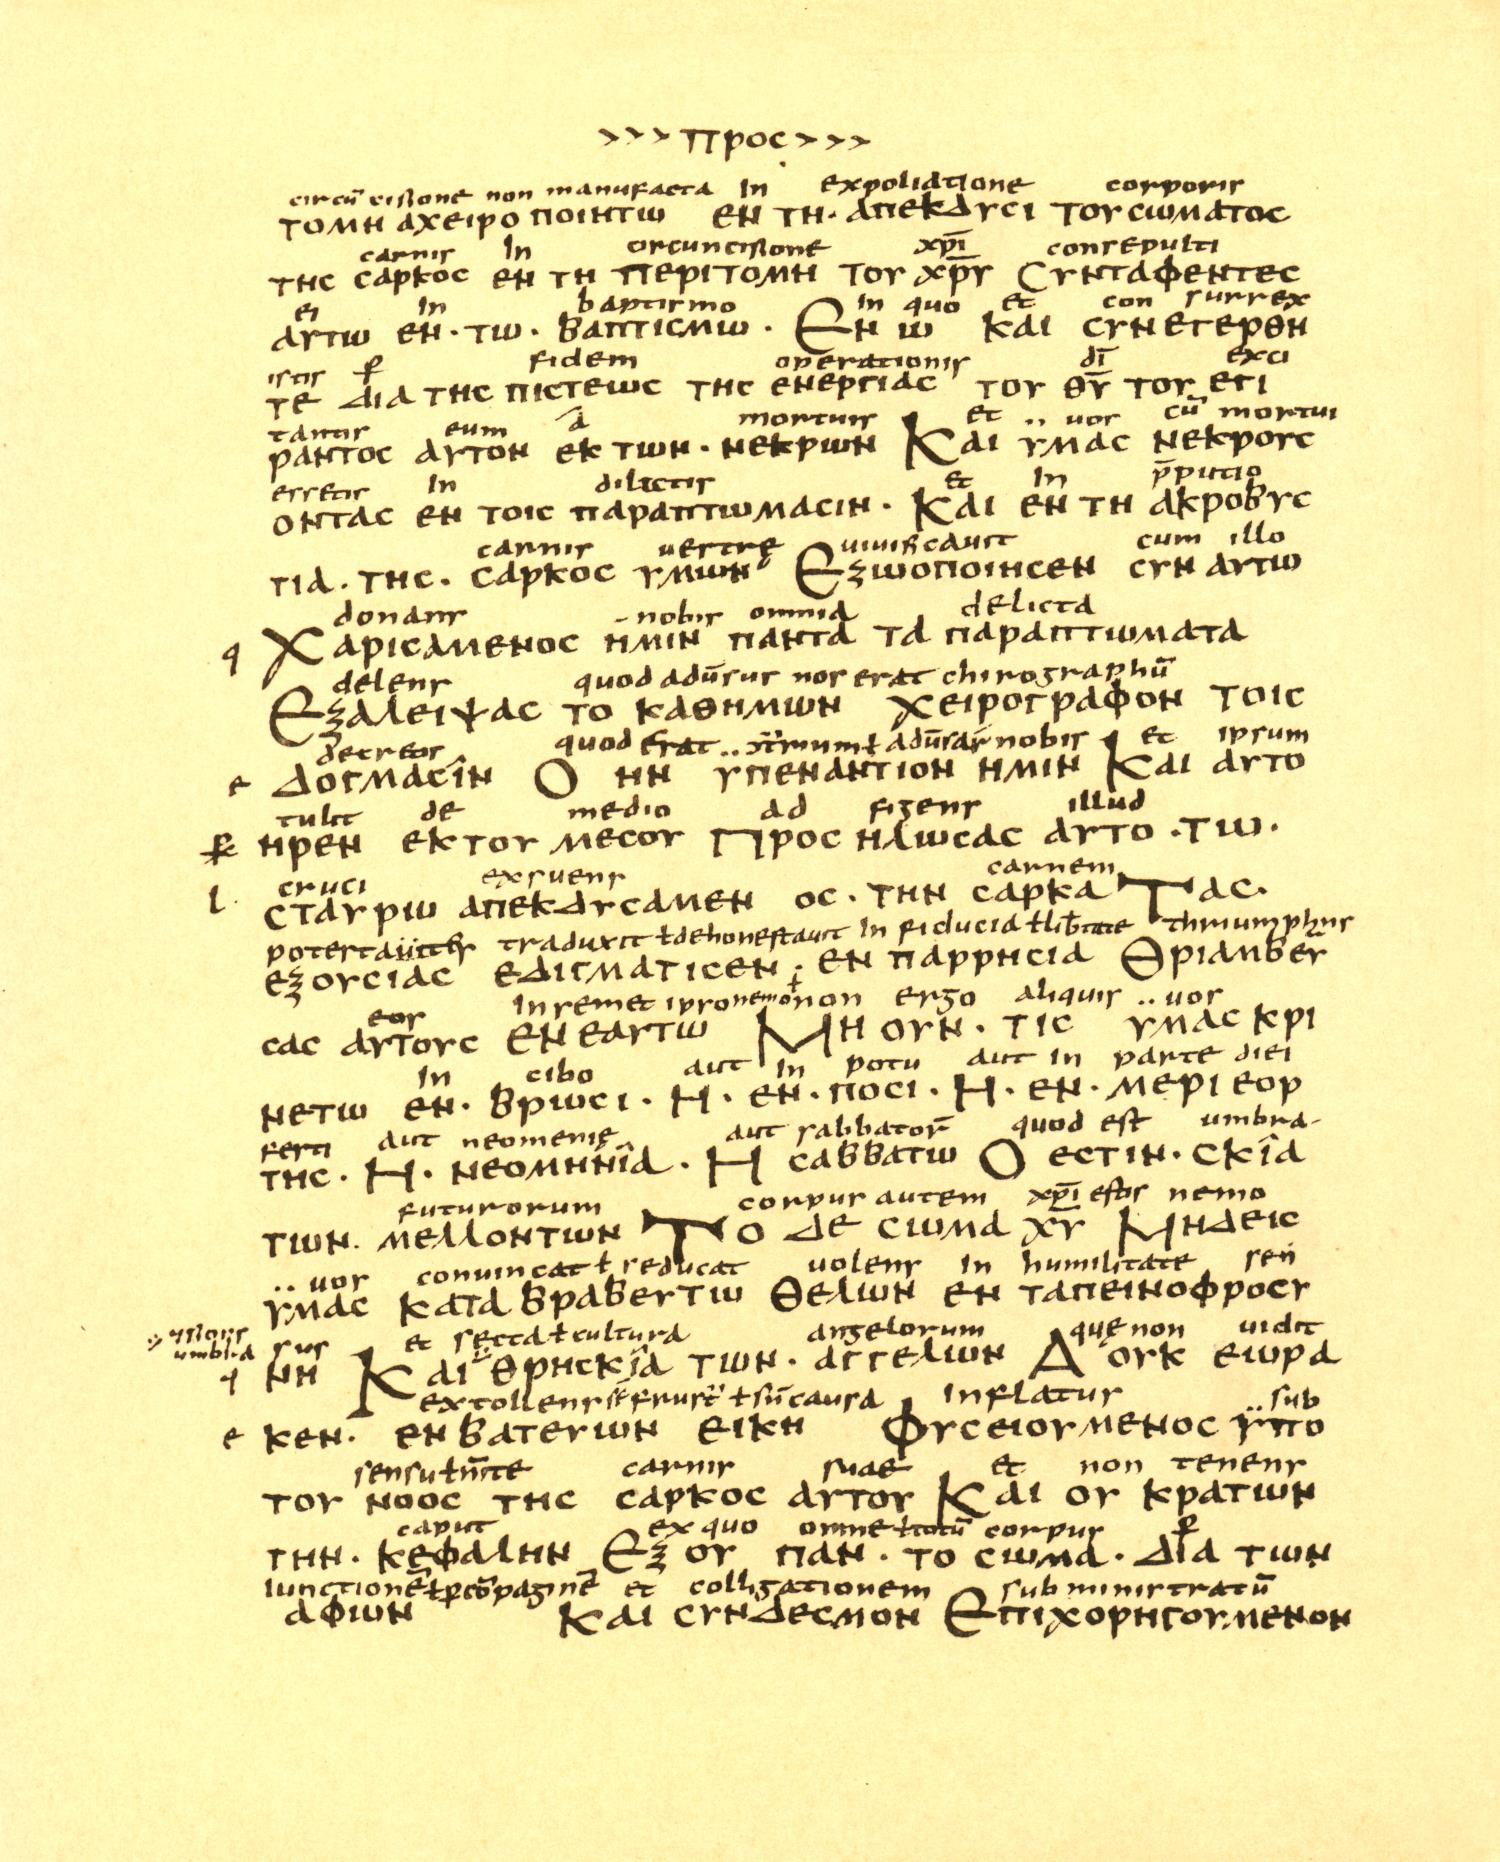 >>> προς >>>
circū cisione non manufacta in expoliatione corporis
τομη αχειρο ποιητω εν τη· απεκδυσι του σωματος
carnis in circuncisione xp̄i consepulti
της σαρκος εν τη περιτομη του χρ̄υ Συνταφεντες
ei in baptismo in quo et con surrex
αυτω εν· τω· βαπτισμω· Εν ω και συνετερθη
istis ꝑ fidem operationis dī exci
τε δια της πιστεως της ενεργιας του θῡ του εγι
tantis eum a mortuis et ·· uos cū mortui
ραντος αυτον εκ των· νεκρων Και υμας νεκρους
essetis in dilictis et in p̄putio
οντας εν τοις παραπτωμασιν· Και εν τη ακροβυς
carnis uestrę uiuificauit cum illo
τια· της· σαρκος υμων Εζωοποιησεν συν αυτω
donans nobis omnia delicta
χαρισαμενος ημιν παντα τα παραπτωματα
delens quod adūsus nos erat chirographū
Εξαλειψας το καθημων χειρογραφον τοις
decretis quod erat nobis et ipsum
δογμασιν Ο ην υπεναντιον ημιν Και αυτο
tulit de medio ad figens illud
ηρεν εκ του μεσου Προς ηλωσας αυτο ·τω·
cruci exsuens carnem
σταυριω απεκδυσαμεν ος· την σαρκα Τας·
traduxit ł dehonestauit in fiducia ł
εξουσιας εδιγματισεν· εν παρρησια Θριαμβευ
eos non ergo aliquis ·· uos
σας αυτους εν εαυτω Μη ουν· τις υμας κρι
in cibo aut in potu aut in parte diei
νετω εν· βρωσι· Η· εν· ποσι· Η· εν· μερι εορ
festi aut neomenię aut sabbatorū quod est umbra
της· Η· νεομηνια· Η σαββατω Ο εστιν· σκια
futurorum corpus autem xp̄i nemo
των· μελλοντων Το δε σωμα χυ Μηδεις
·· uos conuincat ł reducat uolens in humilitate sen
υμας καταβραβευτω θελων εν ταπεινοφροσυ
umbra sus et secta ł cultura angelorum quę non uidit
νη Και θρησκια των· αγγελων Α ουκ εωρα
extollens ł sn̄ causa inflatur sub
κεν· ενβατευων εικη Φυσειουμενος υπο
sensu carnis suae et non tenens
του νοος της σαρκος αυτου Και ου κρατων
caput ex quo omne ł totū corpus ꝑ
την· κεφαλην Εξ ου παν· το σωμα· δια των
et colligationem subministratū
αφων Και συνδεσμον Επιχορηγουμενον